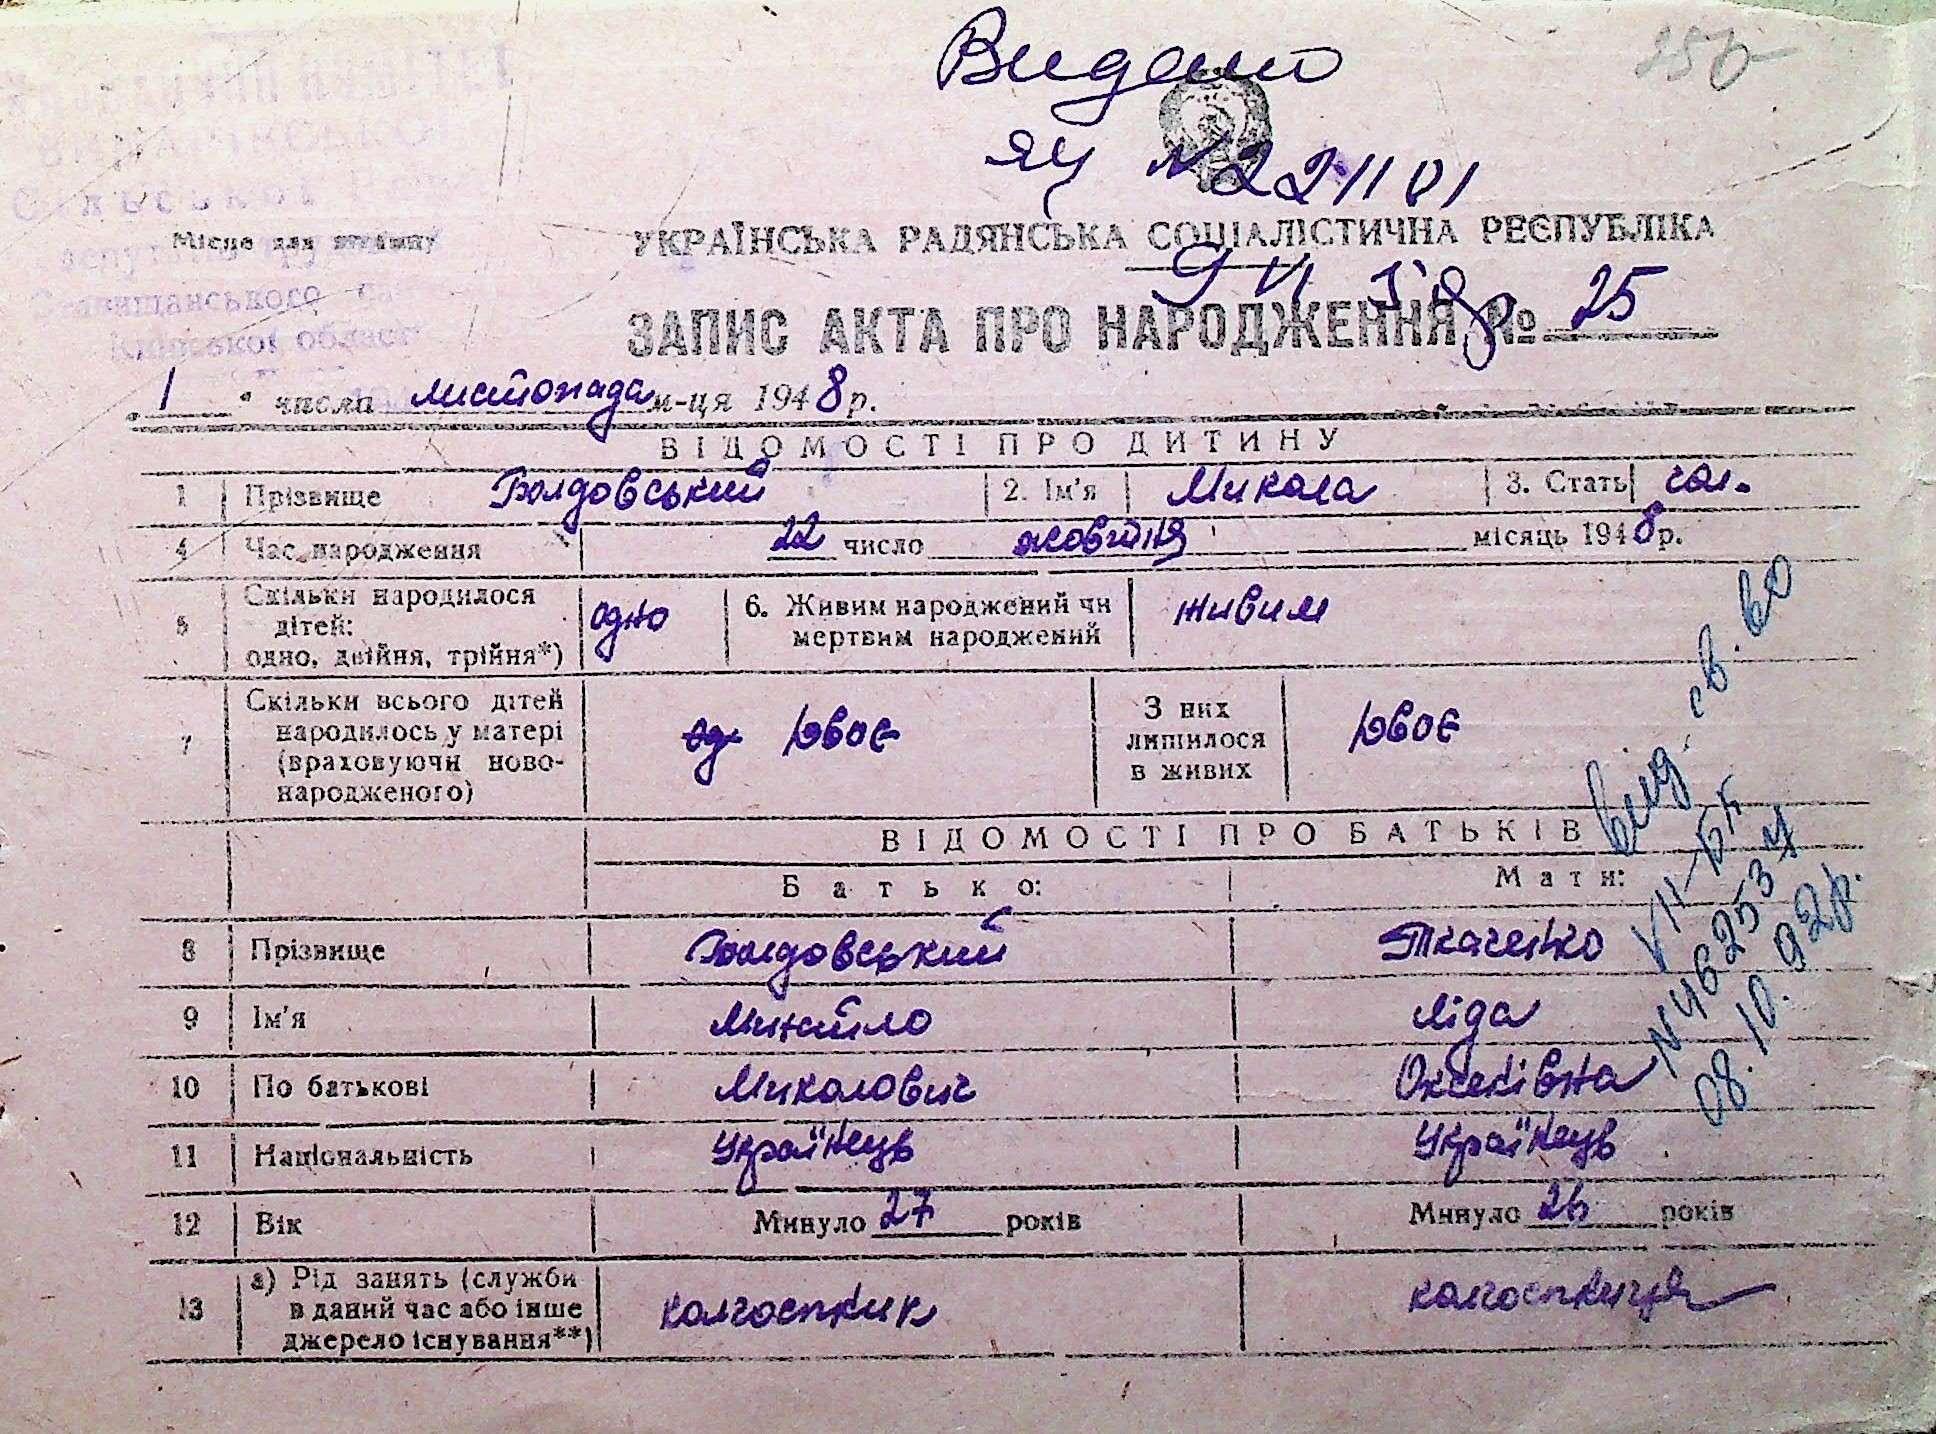 Видано
ЯЦ N 221101
250
Місце для штампу
Ставищанського
Київської області
УКРАЇНСЬКА РАДЯНСЬКА СОЦІАЛІСТИЧНА РЕСПУБЛІКА
ЗАПИС АКТА ПРО НАРОДЖЕННЯ № 25
„ 1 “ числа листопада м-ця 1948 р.
ВІДОМОСТІ ПРО ДИТИНУ
1 Прізвище Болдовський 2. Ім'я Микола 3. Стать чол.
4 Час народження 22 число жовтня місяць 1948 р.
5 Скільки народилося дітей: одно, двійня, трійня*) одно 6. Живим народжений чи мертвим народжений живим
7 Скільки всього дітей народилось у матері (враховуючи новонародженого) од двоє З них лишилося в живих двоє
ВІДОМОСТІ ПРО БАТЬКІВ
Батько: Мати:
8 Прізвище Болдовський Ткаченко
9 Ім'я Михайло Ліда
10 По батькові Миколович
11 Національність Українець Українець
12 Вік Минуло 27 років Минуло 26 років
13 а) Рід занять (служби в даний час або інше джерело існування**) колгоспник колгоспниця
вид. св. во
VII-БК
N 462534
08.10.92р.